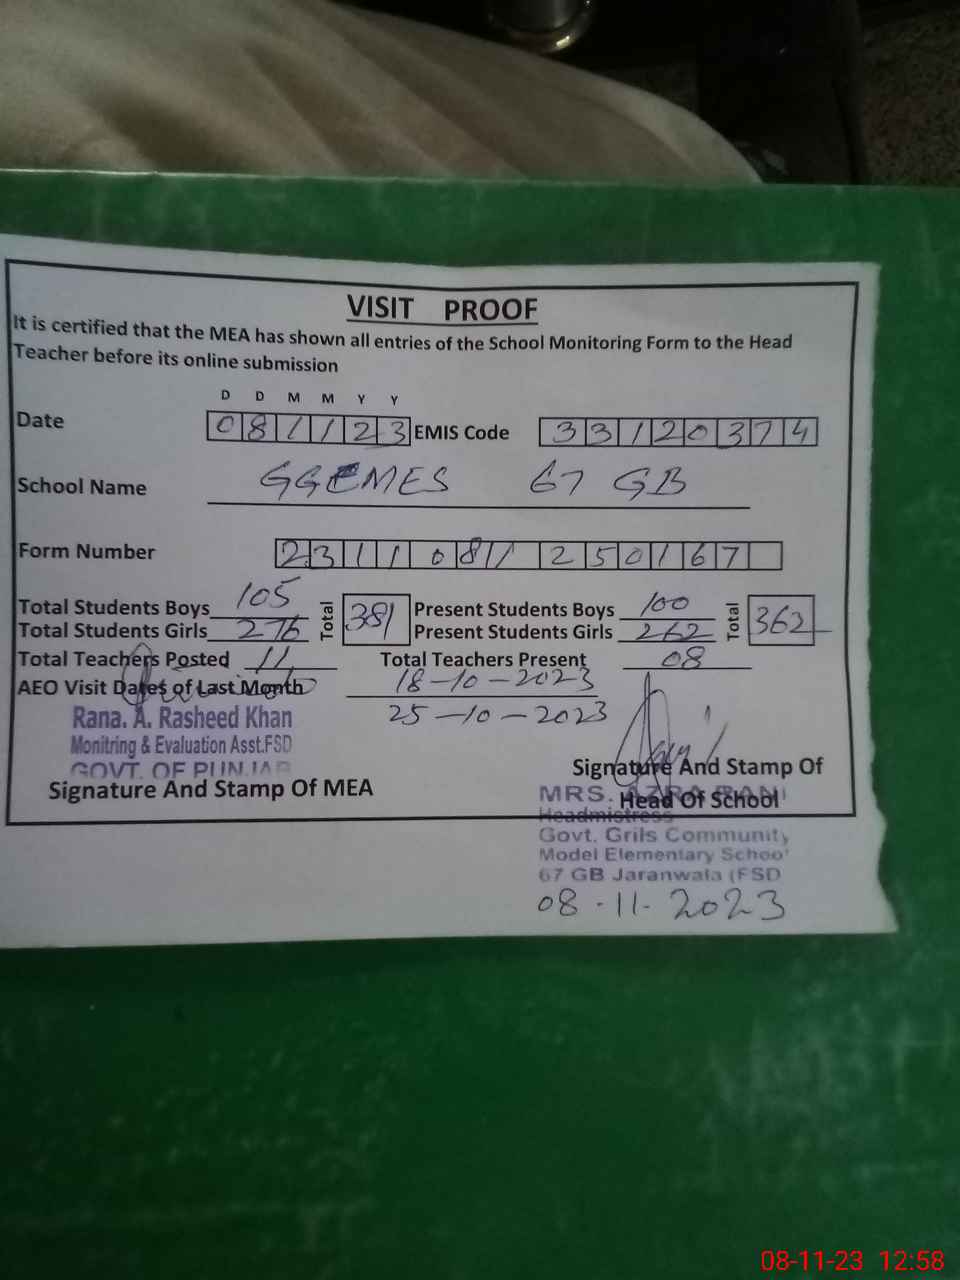 VISIT PROOF
It is certified that the MEA has shown all entries of the School Monitoring Form to the Head
Teacher before its online submission
D D M M Y Y
Date 081123 EMIS Code 33120374
School Name GGCMES 67 GB
Form Number 23110811 250167
Total Students Boys 105 Total 381 Present Students Boys 100 Total 362
Total Students Girls 276 Present Students Girls 262
Total Teachers Posted 11 Total Teachers Present 08
AEO Visit Dates of Last Month 18-10-2023
25-10-2023
Rana. A. Rasheed Khan
Monitring & Evaluation Asst.FSD
GOVT. OF PUNJAB
Signature And Stamp Of MEA
Signature And Stamp Of
Head Of School
MRS. AZRA RANI
Headmistress
Govt. Grils Community
Model Elementary School
67 GB Jaranwala (FSD
08-11-2023
08-11-23 12:58